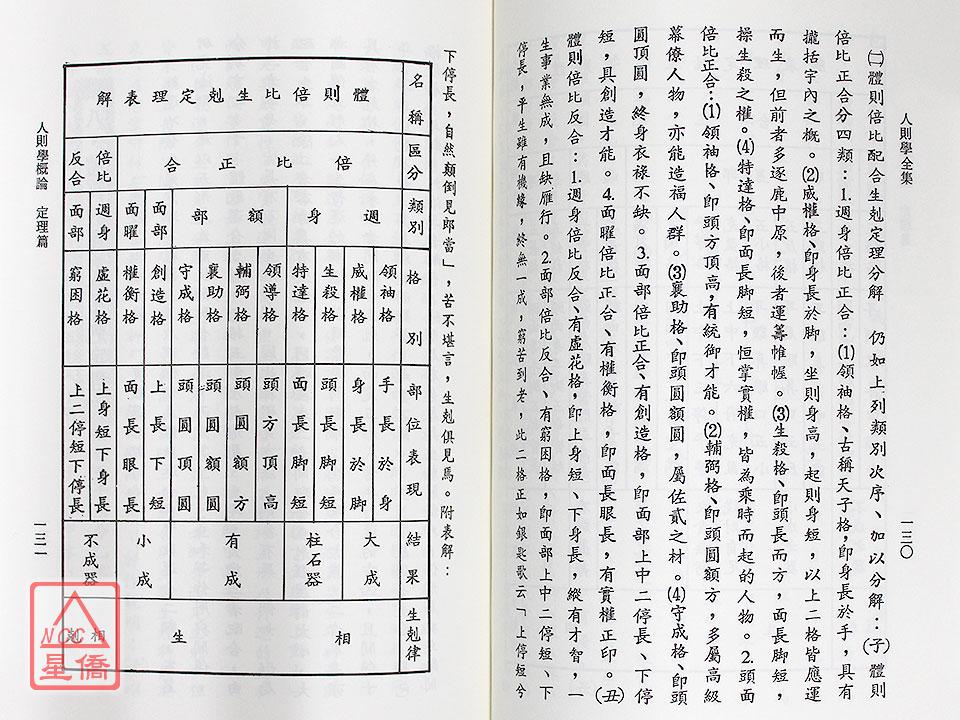 人則學全集
一三〇
㈡體則倍比配合生剋定理分解　仍如上列類別次序、加以分解：㈠子體則
倍比正合分四類：1.週身倍比正合：⑴領袖格、古稱天子格，即身長於手，具有
攏括宇內之概。⑵威權格、即身長於脚，坐則身高，起則身短，以上二格皆應運
而生，但前者多逐鹿中原，後者運籌帷幄。⑶生殺格、即頭長而方，面長脚短，
操生殺之權。⑷特達格、即面長脚短，恒掌實權，皆為乘時而起的人物。2.頭面
倍比正合：⑴領袖格、即頭方頂高，有統御才能。⑵輔弼格、即頭圓額方，多屬高級
幕僚人物，亦能造福人群。⑶襄助格、即頭圓額圓，屬佐貳之材。⑷守成格、即頭
圓頂圓，終身衣祿不缺。3.面部倍比正合、有創造格，即面部上中二停長、下停
短，具創造才能。4.面曜倍比正合、有權衡格，即面長眼長，有實權正印。(丑)
體則倍比反合：1.週身倍比反合、有虛花格，即上身短、下身長，縱有才智，一
生事業無成，且缺雁行。2.面部倍比反合、有窮困格，即面部上中二停短、下
停長，平生雖有機緣，終無一成，窮苦到老，此二格正如銀匙歌云「上停短兮
下停長，自然顛倒見郎當」，苦不堪言，生剋俱見焉。附表解：
名稱
體則倍比生剋定理表解
區分
倍比正合
倍比反合
類別
週身
額部
面部
面曜
週身
面部
格別
領袖格
威權格
生殺格
特達格
領導格
輔弼格
襄助格
守成格
創造格
權衡格
虛花格
窮困格
部位表現
手長於身
身長於脚
頭長脚短
面長脚短
頭方頂高
頭圓額方
頭圓額圓
頭圓頂圓
上長下短
面長眼長
上身短下身長
上二停短下停長
結果
大成
柱石器
有成
小成
不成器
生剋律
相生
相剋
人則學概論　定理篇
一三一
NCC
星僑